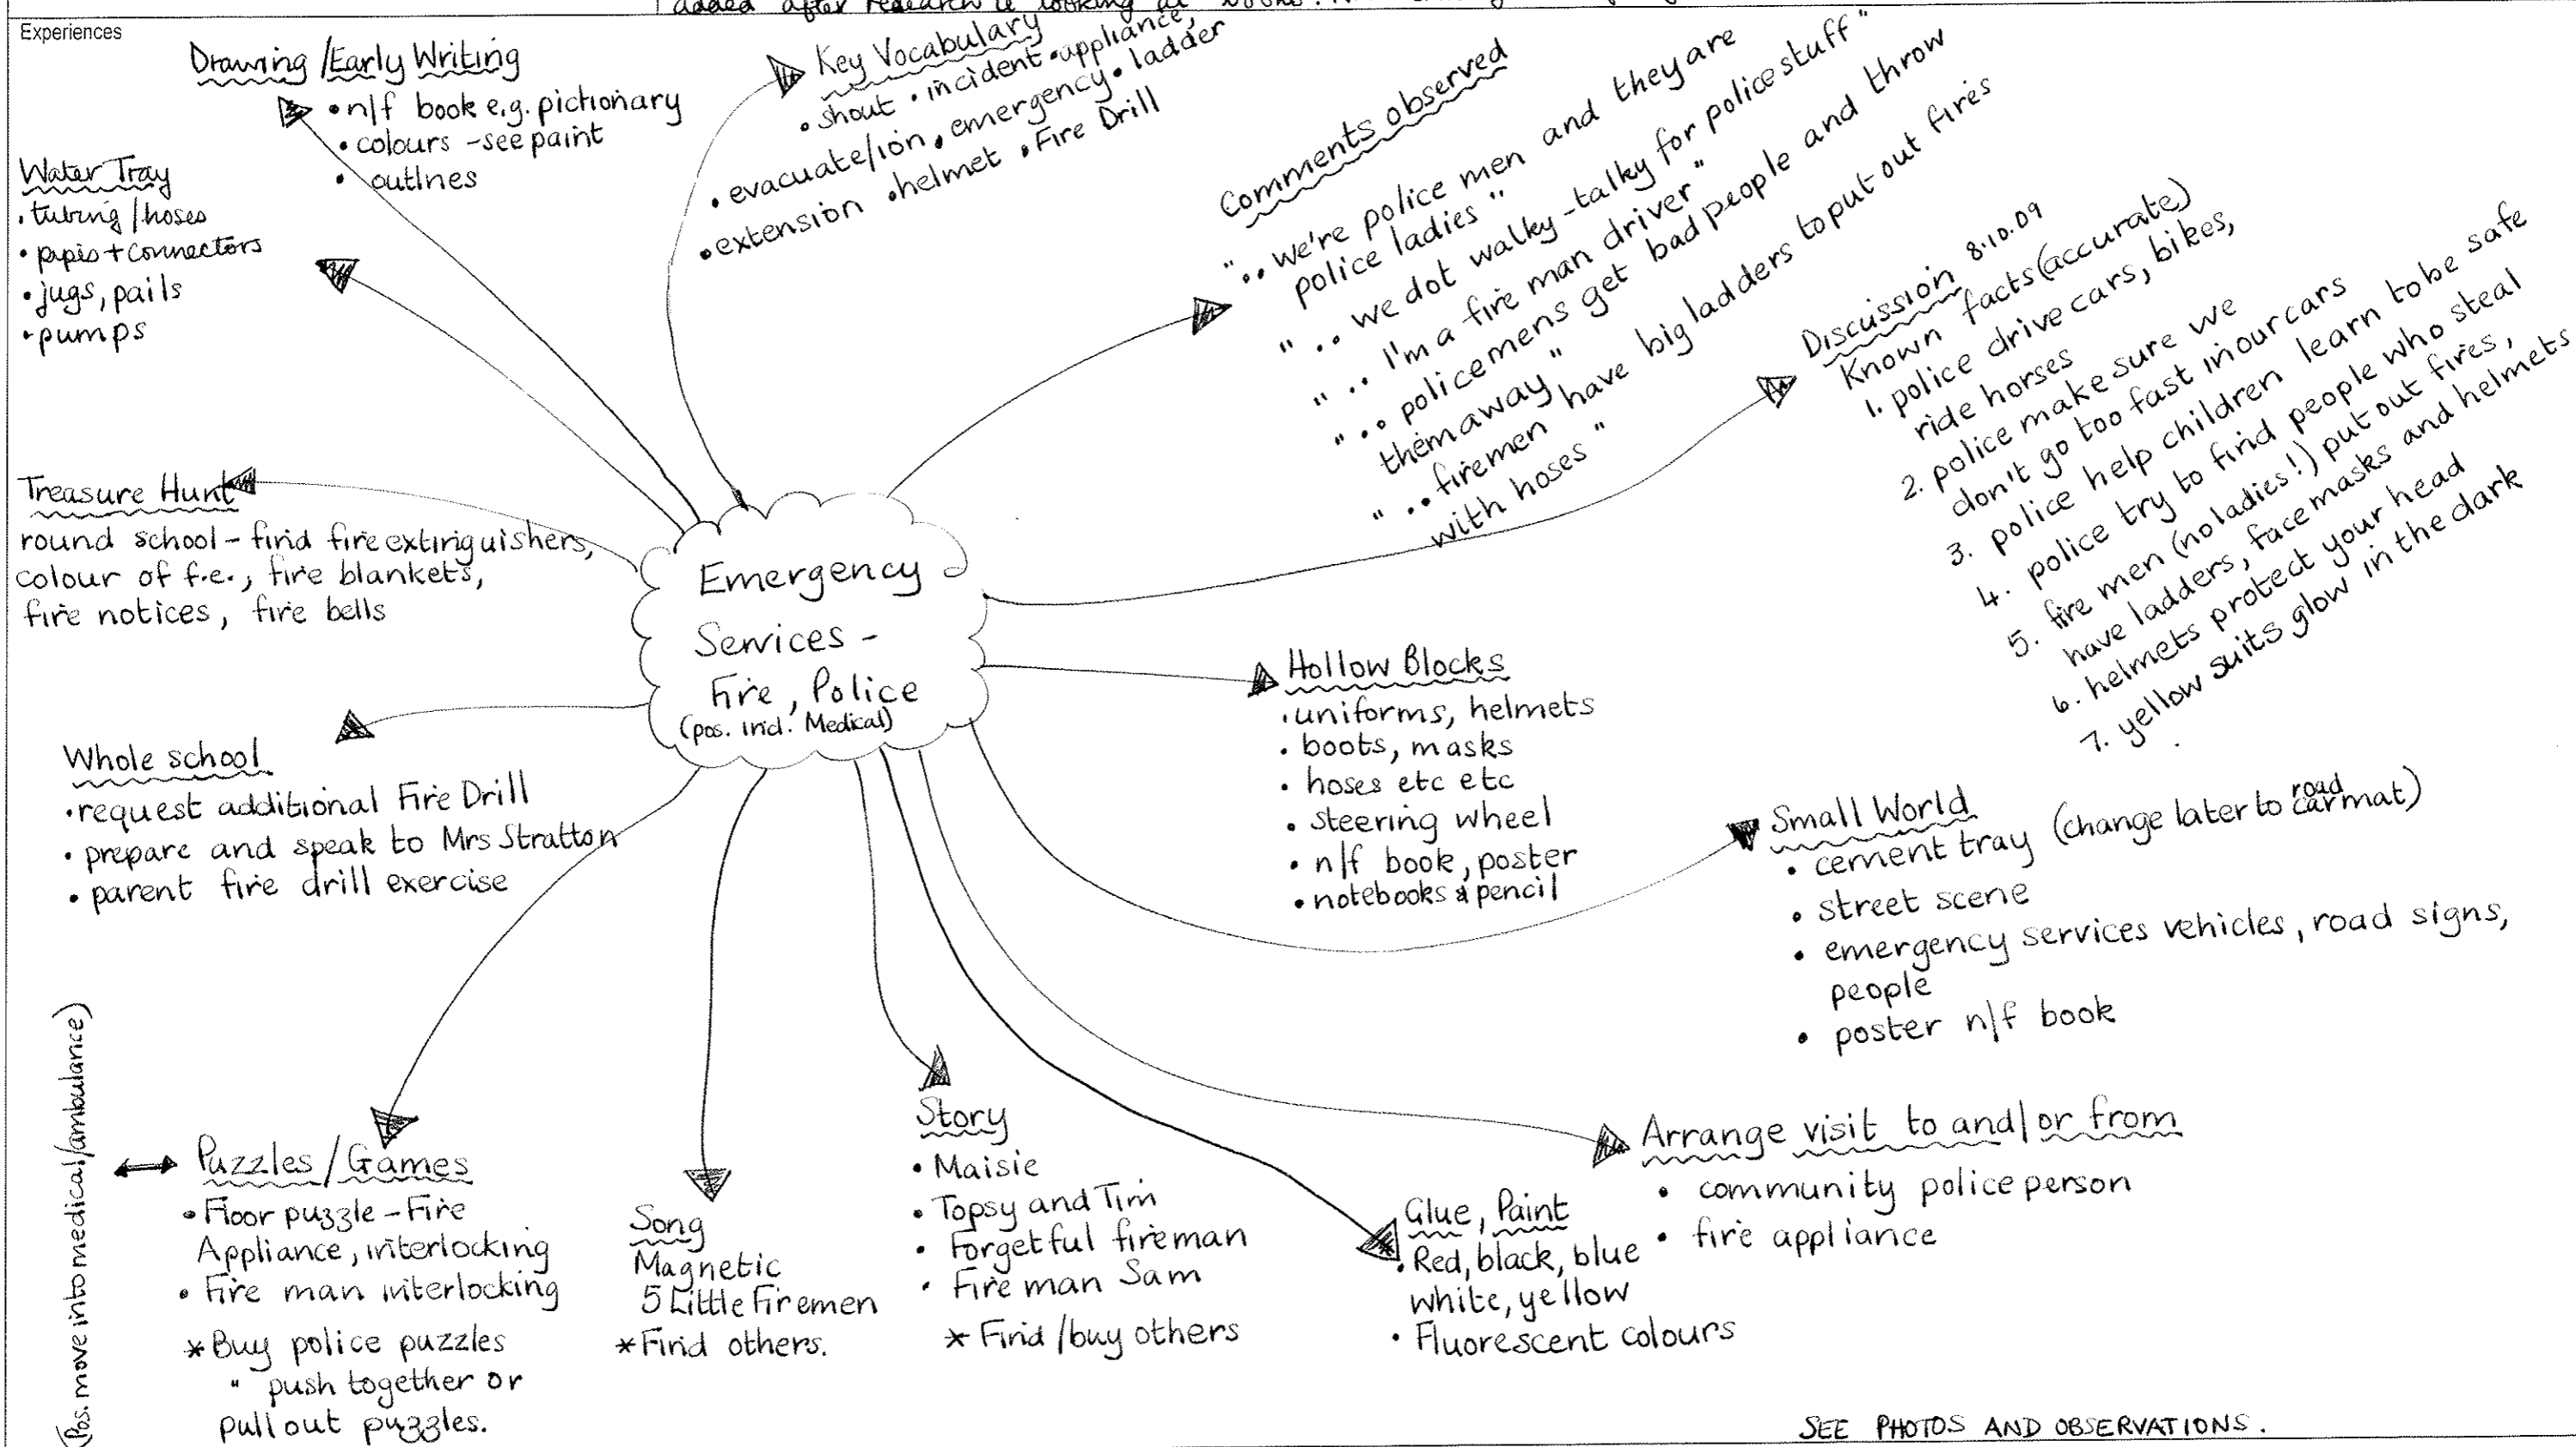 added after research ie looking at books.
Experiences
Drawing /Early Writing
• n/f book e.g. pictionary
• colours - see paint
• outlnes
Key Vocabulary
• shout • incident • appliance,
• evacuate/ion • emergency • ladder
• extension • helmet • Fire Drill
Comments observed
".. we're police men and they are
police ladies"
".. we dot walky-talky for police stuff"
".. I'm a fire man driver"
".. policemens get bad people and throw
them away"
".. firemen have big ladders to put out fires
with hoses"
Discussion 8.10.09
Known facts (accurate)
1. police drive cars, bikes,
ride horses
2. police make sure we
don't go too fast in our cars
3. police help children learn to be safe
4. police try to find people who steal
5. fire men (no ladies!) put out fires,
have ladders, face masks and helmets
6. helmets protect your head
7. yellow suits glow in the dark
Water Tray
• tubing/hoses
• pipes + connectors
• jugs, pails
• pumps
Treasure Hunt
round school - find fire extinguishers,
colour of f.e., fire blankets,
fire notices, fire bells
Emergency
Services -
Fire, Police
(pos. incl. Medical)
Hollow Blocks
• uniforms, helmets
• boots, masks
• hoses etc etc
• steering wheel
• n/f book, poster
• notebooks & pencil
Whole school
• request additional Fire Drill
• prepare and speak to Mrs Stratton
• parent fire drill exercise
Small World
road
• cement tray (change later to car mat)
• street scene
• emergency services vehicles, road signs,
people
• poster n/f book
(Pos. move into medical/ambulance)
Puzzles/Games
• Floor puzzle - Fire
Appliance, interlocking
• Fire man interlocking
* Buy police puzzles
" push together or
pull out puzzles.
Song
Magnetic
5 Little Firemen
* Find others.
Story
• Maisie
• Topsy and Tim
• Forgetful fireman
• Fire man Sam
* Find/buy others
Glue, Paint
• Red, black, blue
white, yellow
• Fluorescent colours
Arrange visit to and/or from
• community police person
• fire appliance
SEE PHOTOS AND OBSERVATIONS.